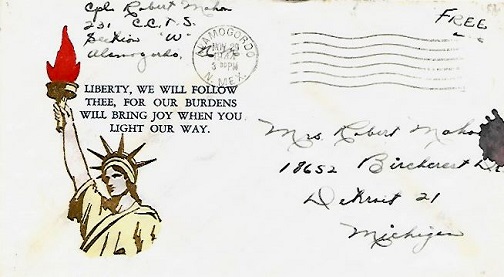 Cpl. Robert Mahon
231 C.C.T.S.
Section "W"
Alamogordo, N. Mex.
ALAMOGORDO
NOV 29
1944
3 PM
N. MEX.
FREE
LIBERTY, WE WILL FOLLOW
THEE, FOR OUR BURDENS
WILL BRING JOY WHEN YOU
LIGHT OUR WAY.
Mrs. Robert Mahon
18652 Birchcrest Dr
Detroit 21
Michigan